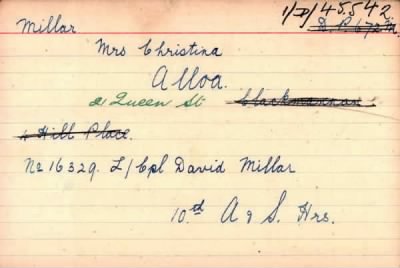 Millar 1/D/45,542
Mrs Christina
Alloa.
21 Queen St Clackmannan
4 Hill Place.
No 16329. L/Cpl David Millar
10th A & S. Hrs.